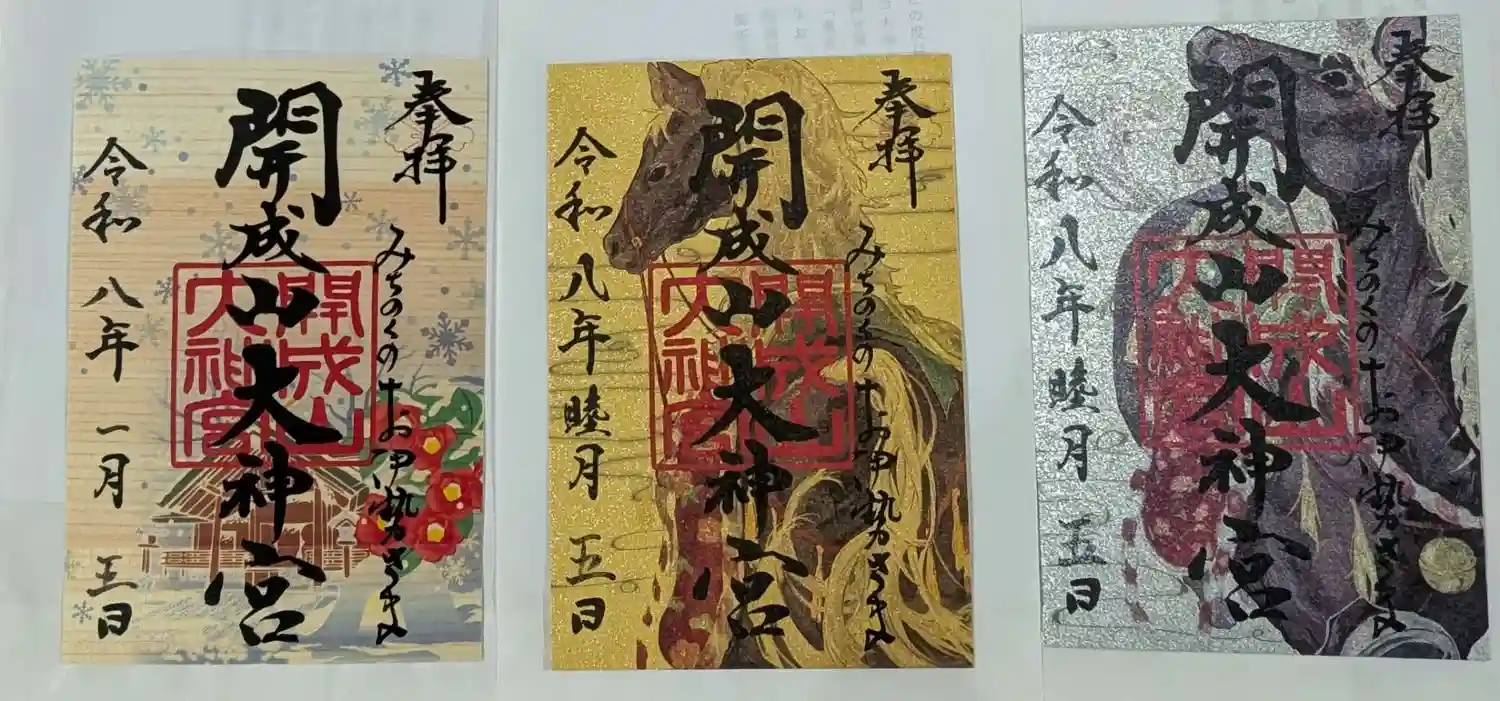 奉拝
みちのくのおお伊勢さま
開成山大神宮
開成山
大神宮
令和八年一月五日
奉拝
みちのくのおお伊勢さま
開成山大神宮
開成山
大神宮
令和八年睦月五日
奉拝
みちのくのおお伊勢さま
開成山大神宮
開成山
大神宮
令和八年睦月五日